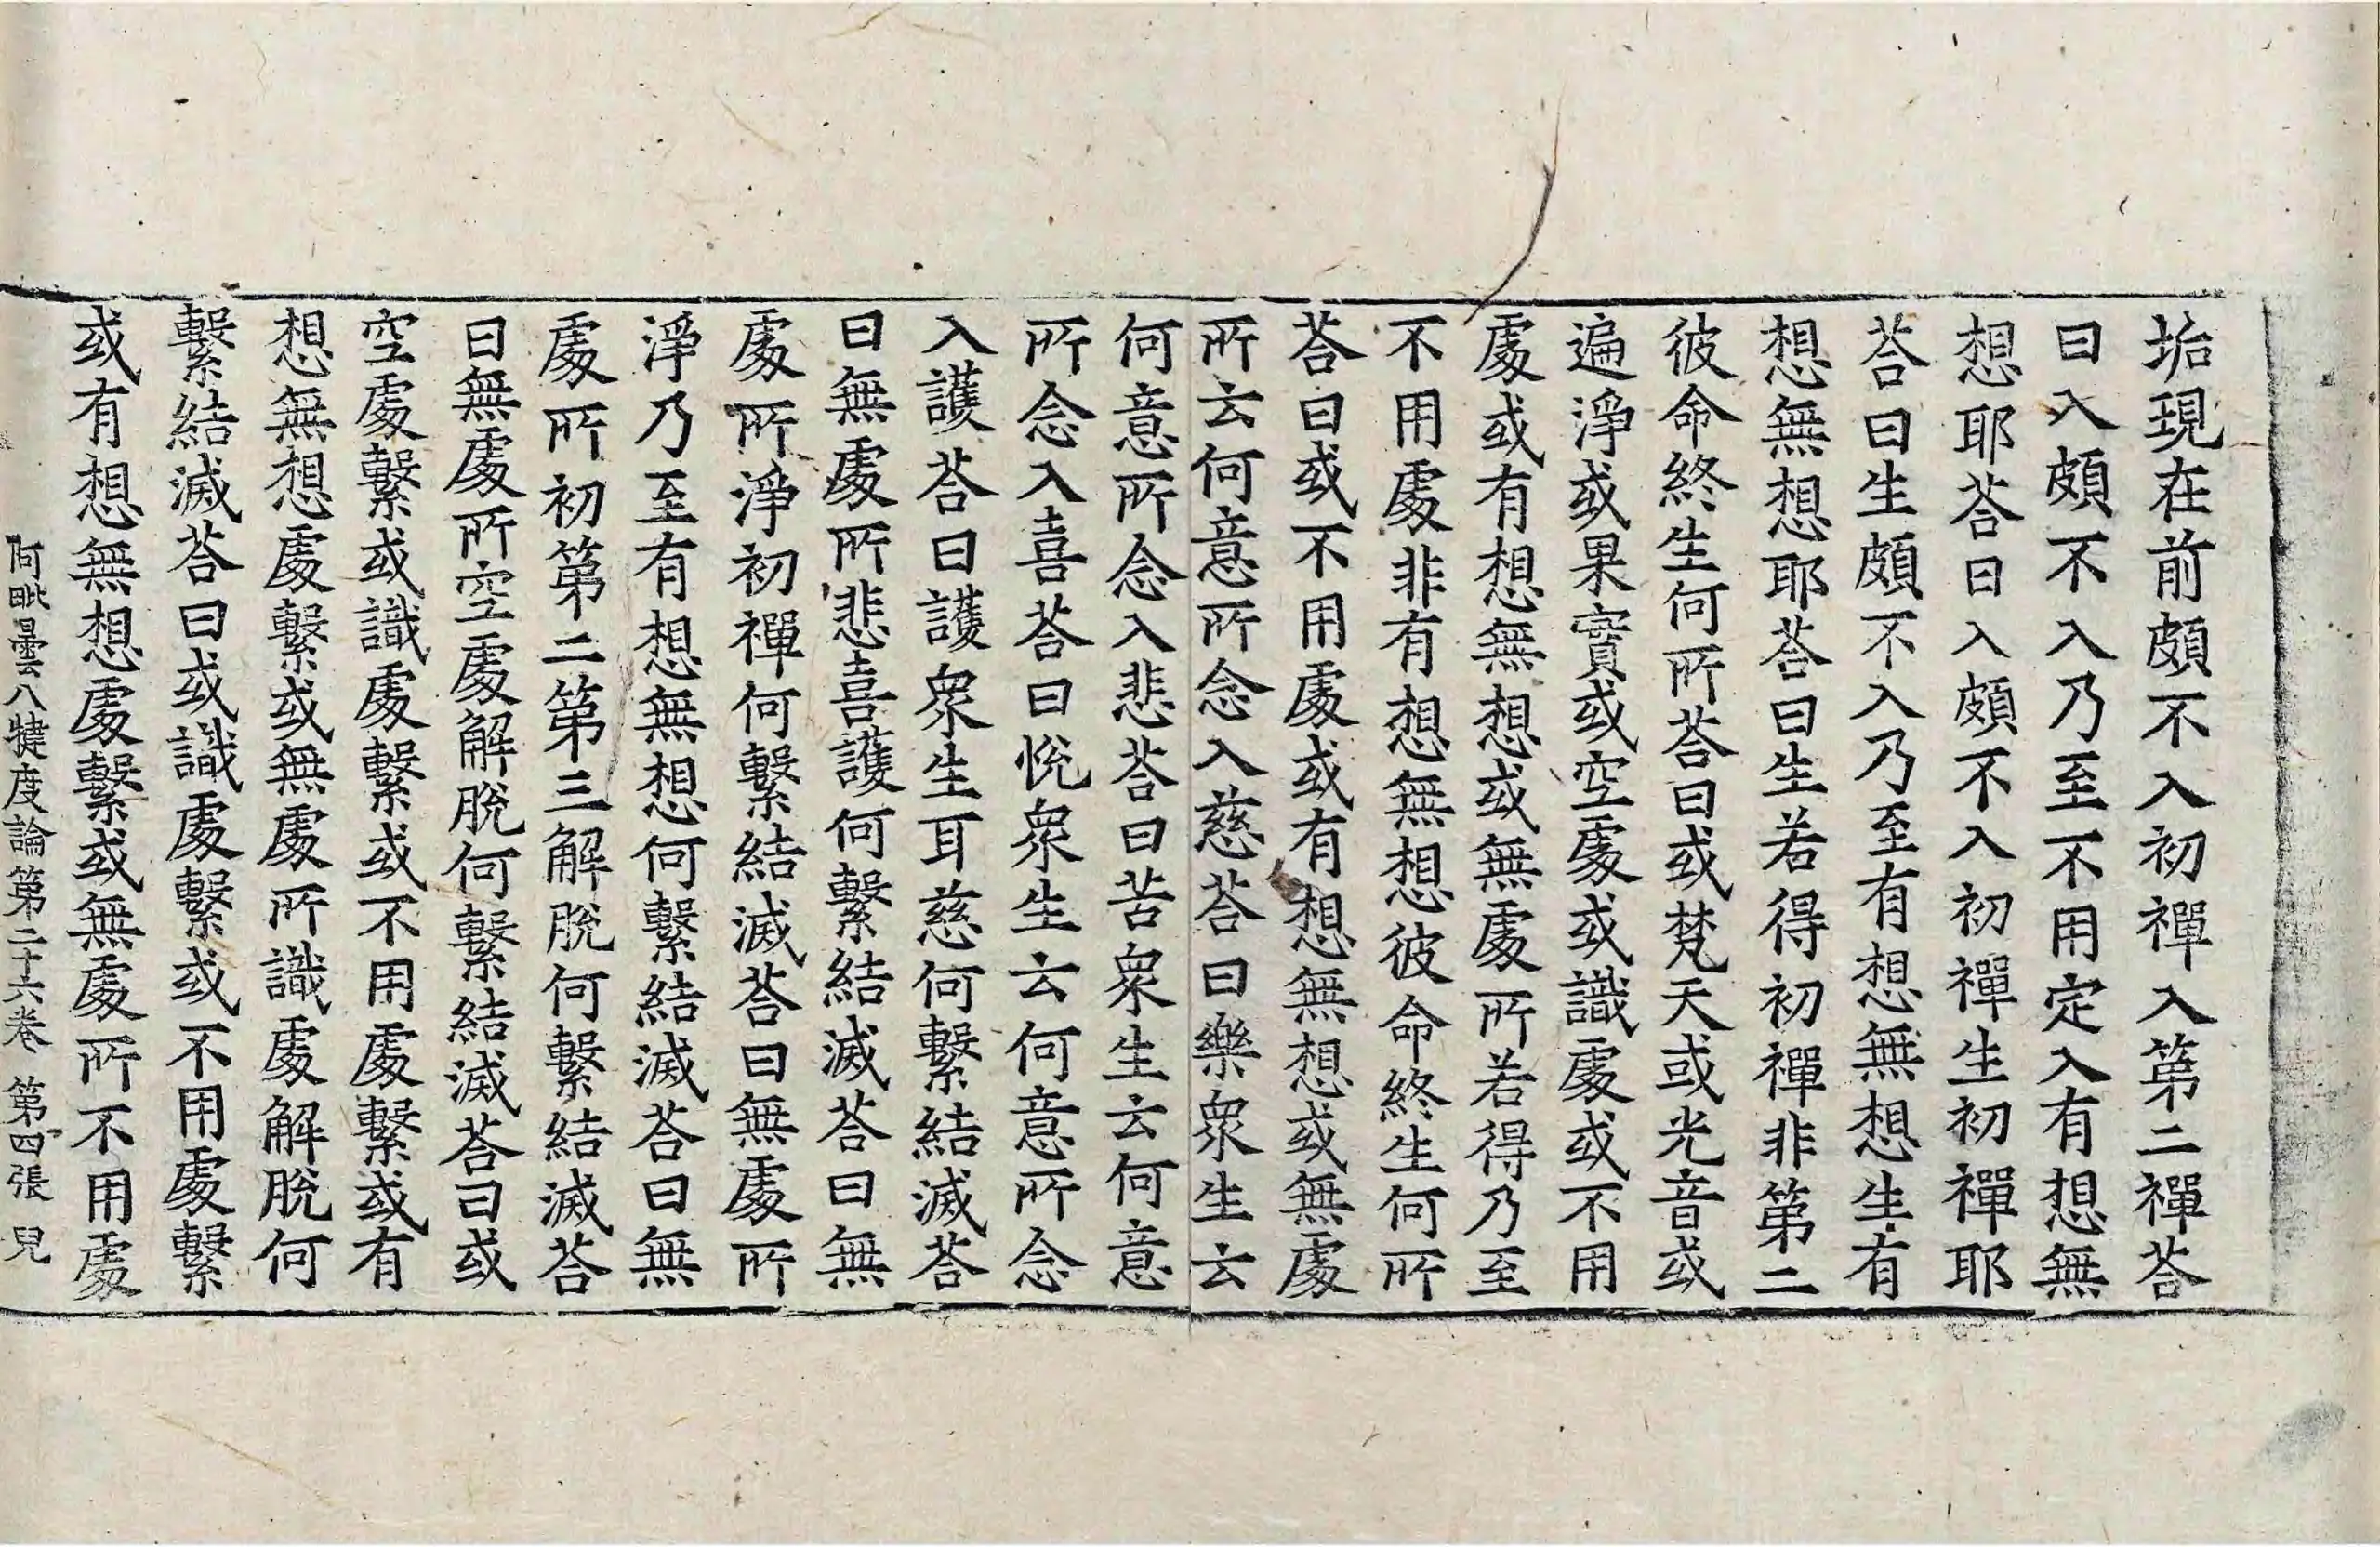 垢現在前頗不入初禪入第二禪荅
曰入頗不入乃至不用定入有想無
想耶荅曰入頗不入初禪生初禪耶
荅曰生頗不入乃至有想無想生有
想無想耶荅曰生若得初禪非第二
彼命終生何所荅曰或梵天或光音或
遍淨或果實或空處或識處或不用
處或有想無想或無處所若得乃至
不用處非有想無想彼命終生何所
荅曰或不用處或有想無想或無處
所云何意所念入慈荅曰樂衆生云
何意所念入悲荅曰苦衆生云何意
所念入喜荅曰悅衆生云何意所念
入護荅曰護衆生耳慈何繫結滅荅
曰無處所悲喜護何繫結滅荅曰無
處所淨初禪何繫結滅荅曰無處所
淨乃至有想無想何繫結滅荅曰無
處所初第二第三解脫何繫結滅荅
曰無處所空處解脫何繫結滅荅曰或
空處繫或識處繫或不用處繫或有
想無想處繫或無處所識處解脫何
繫結滅荅曰或識處繫或不用處繫
或有想無想處繫或無處所不用處
阿毗曇八犍度論第二十六卷 第四張 兒